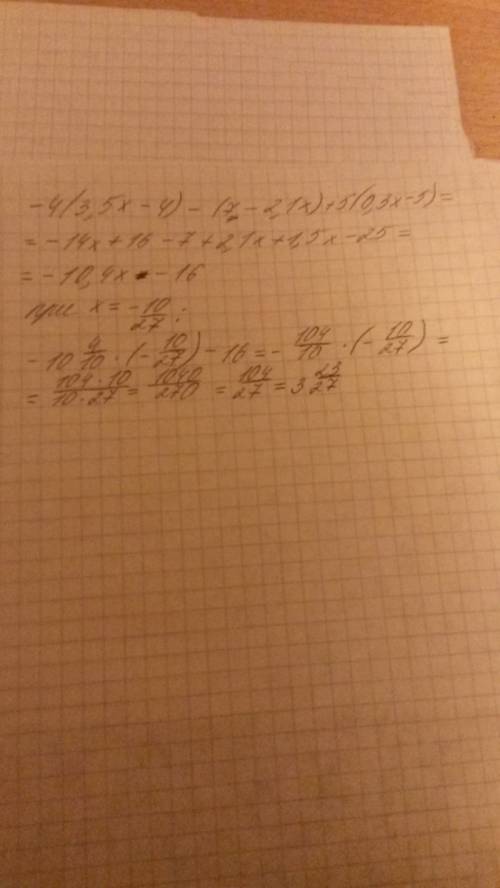 -4(3,5x-4)-(7-2,1x)+5(0,3x-5)=
=-14x+16-7+2,1x+1,5x-25=
=-10,4x-16
при x=-10/27;
-10 4/10·(-10/27)-16=-104/10·(-10/27)=
=104·10/10·27=1040/270=104/27=3 23/27